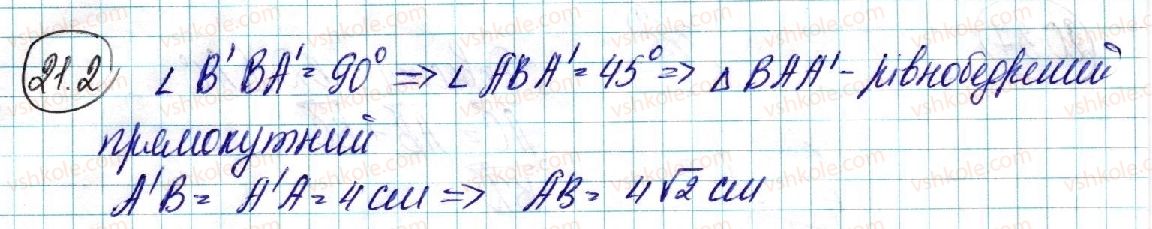 21.2 ∠ B'BA' = 90° => ∠ ABA' = 45° => △ BAA' - рівнобедрений
прямокутний
A'B = A'A = 4 см => AB = 4√2 см